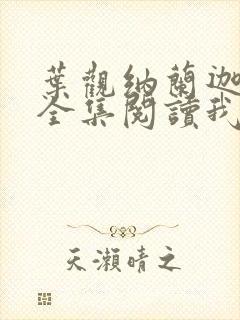 葉觀納蘭迦
全集閱讀我
天瀨晴之